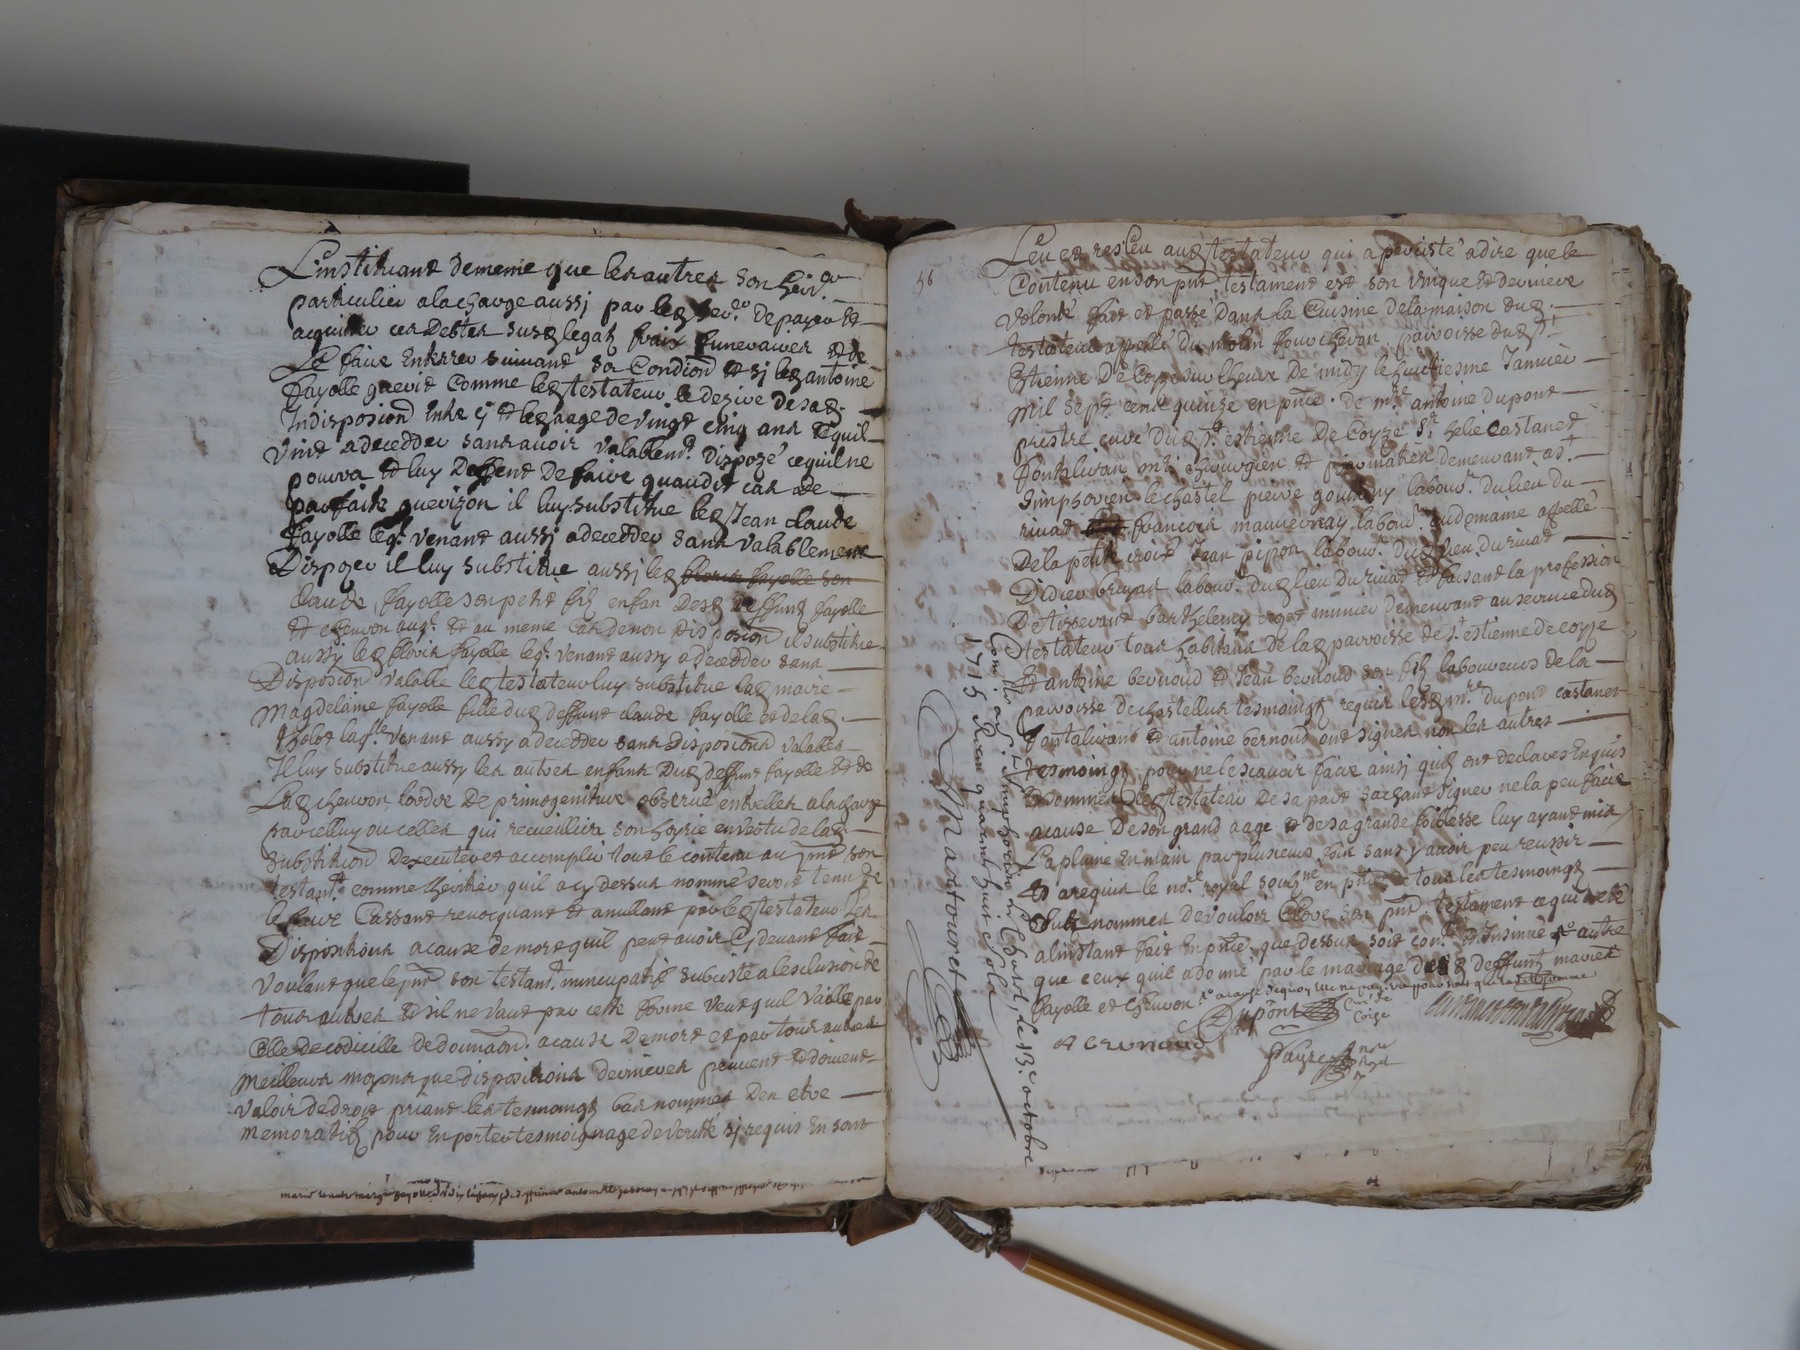 Linstituant dememe que les autres son heir.er
particulier alacharge aussj par led her.er depayer et
acquitter ces Debtes susd legatz fraix funeraires et de
Le faire Enterrer suivant sa Condiond et sj led antoine
fayolle guerit Comme led testateur le desire desad.
Indisposiond Entre cy et leq aage de vingt cinq ans et quil
vint adecedder sans avoir valablemt. disposé cequil ne
pourra et luy Deffent De faire quaudit cas de
parfaite guerizon il luy substitue led Jean claude
fayolle leqt. venant aussj adecedder sans valablement
Disposer il luy substitue aussj led floris fayolle son
claude fayolle son petit filz enfan Desd deffunt fayolle
et chervon auqt. et au meme Cas de non Disposiond il substitue
aussy led floris fayolle leqt. venant aussy adecedder sans
Disposiond valable led testateur luy substitue lad marie
Magdelaine fayolle fille dud deffunt claude fayolle et de lad.
laqlle. venant aussy adecedder sans Disposiond valable
Il luy substitue aussy les autres enfans Dud deffunt fayolle et de
Lad chervon lordre De primogeniture observé entrelles alacharge
par celluy ou celles qui recueillira son hoyrie en vertu de lad.
substitution Dexecuter et accomplir tout le contenu au pnt son
testamt. comme lheritier quil a cy dessus nommé seroit tenu de
le faire Cassant revocquant et anullant par led testateur Les
Dispositions acause de mort quil peut avoir Cy devant fait
voulant que le pnt son testamt. nuncupatif subciste alesclusion de
tous autres et sil ne vaut par cette forme veut quil vaille par
Celle de codicille de donnaon. acause Demort et par tous autres
meilleurs moyens que dispositions dernieres peuvent et doivent
valoir de droit priant les tesmoingz bas nommes Den etre
memoratifz pour En porter tesmoignage de verité sj requis En sont
56
Leu et resleu aud testateur qui apercisté adire que le
Contenu en son pnt testament est son Unique et derniere
volonté fait et passé dans la Cuisine dela maison dud
testateur appellé du molin fourchevon parroisse dud St.
Estienne De Coyse sur lheure De midy le huictiesme Janvier
mil sept cent quinze en pnce. de mre antoine dupont
prestre curé dud St. estienne De Coyze Sr helie Castanet
fontalivan mre chirurgien et demeurant a St.
Simphorien le chastel pierre gouttenoy labour. du lieu du
rivat francois labour. audomaine appellé
De la petite croix Jean pipon labour. dud lieu du rivat
Didier bruyas labour. dud lieu du rivat et faisant la profession
De tisserant barthelemy munier demeurant au service dud
testateur tous habitans de lad parroisse de St. estienne de coyse
Et antoine bernoud et Jean bernoud son filz laboureurs de la
parroisse de chastellus tesmoingz requis lesd mres dupont castanet
fontalivant et antoine bernoud ont signes non les autres
tesmoingz pour ne le scavoir faire ainsj quilz ont declarés Enquis
et sommes led testateur De sa part sachant signer ne la peu faire
acause De son grand aage et de sa grande foiblesse luy ayant mis
La plume En main par plusieurs fois sans y avoir peu reussir
Et arequis le nore. royal soubzne en pnce De tous les tesmoingz
sus nommes de vouloir Clore son pnt testament ce qui a eté
alinstant fait En pnce que dessus soit conlé. et Insinué
que ceux quil a donné par le mariage desd deffunt mariés
fayolle et chervon
Dupont curé de Coize
A Bernoud
Conllé. a St. Simphorien le Chatl., le 13e. octobre
1715 Receu quarante huict sols